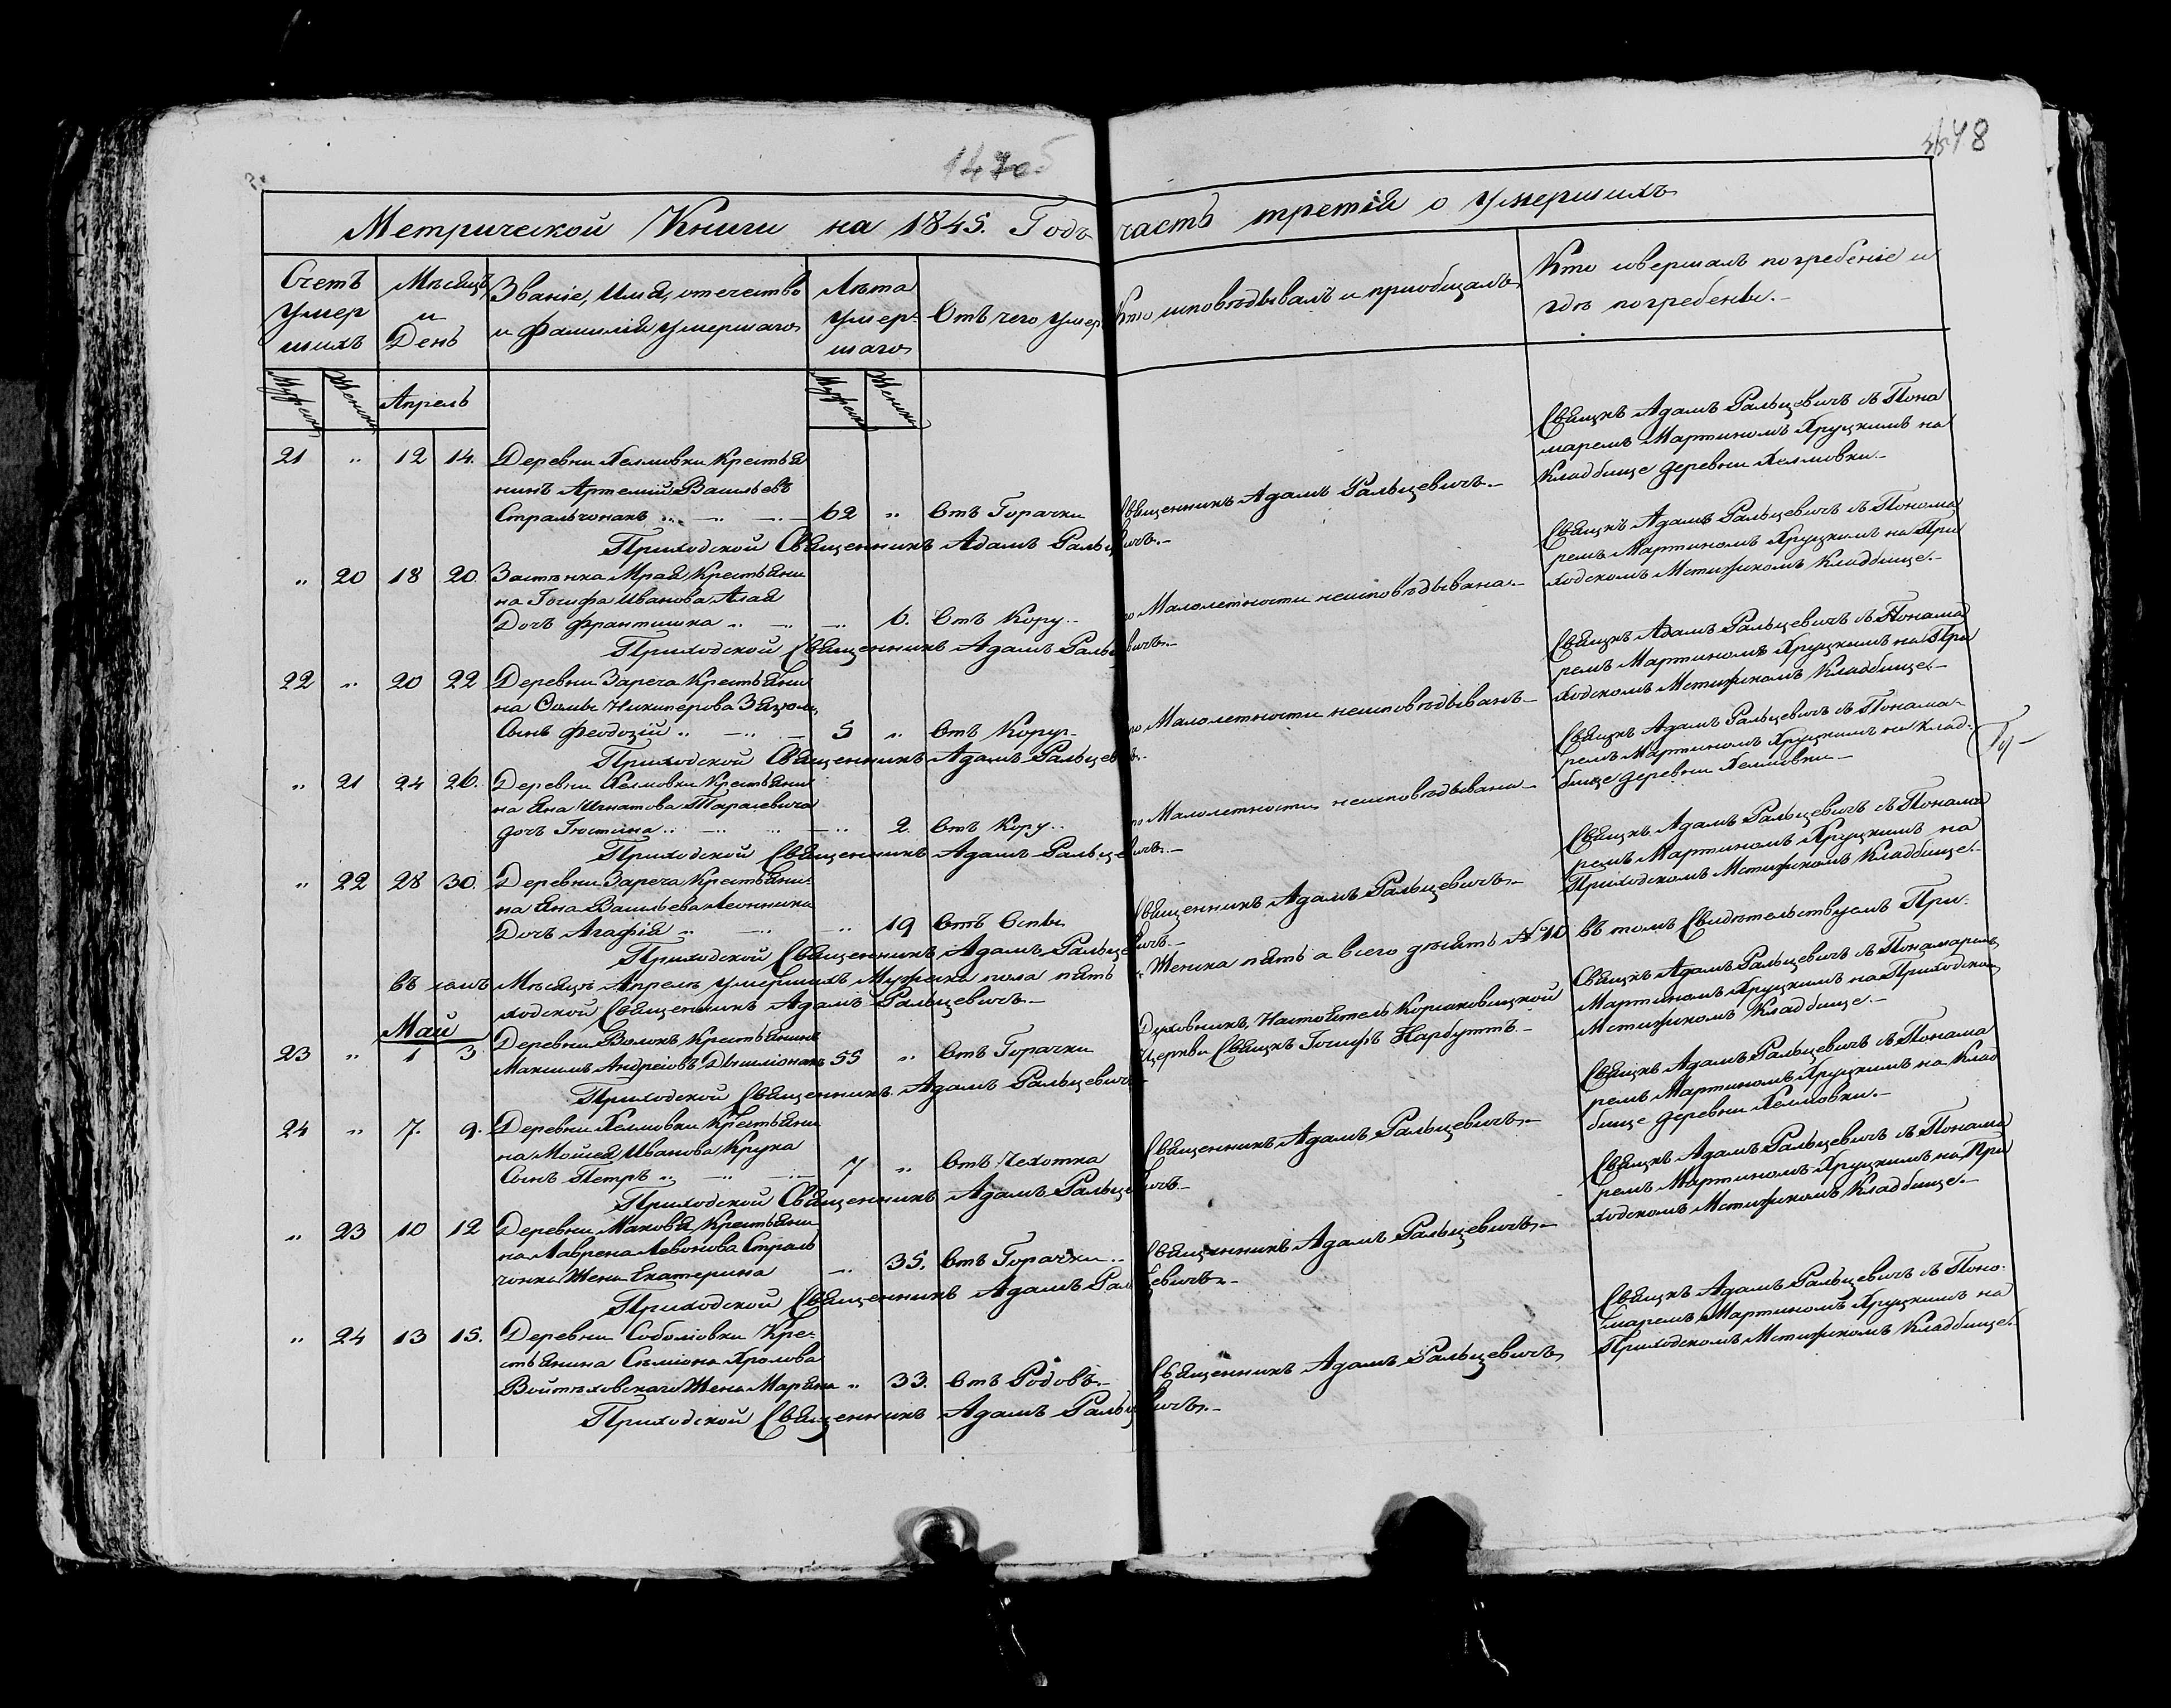 1470
478
Метрической Книги на 1845. Годъ часть третія о Умершихъ
Счетъ Умер шихъ
Мѣсяцъ и День
Званіе, Имя, отечество и Фамилія умершаго
Лѣта умер- шаго
Отъ чего умеръ
Кто исповѣдывалъ и пріобщалъ
Кто совершалъ погребеніе и гдѣ погребены.-
Мужск
Женск
Апрель
Мужск
Женск
21 " 12 14. Деревни Хелмовки Крестья
нинъ Артемій Васильевъ
Стральчонакъ 62 " Отъ Горачки Священникъ Адамъ Ральцевичъ.-
Свящнкъ Адамъ Ральцевичъ съ Пона
маремъ Мартиномъ Хруцкимъ на
Кладбище деревни Хелмовки.-
Приходской Священникъ Адамъ Ральцевичъ.-
" 20 18 20. Застѣнка Мрая Крестьяни
на Іосифа Иванова Алая
Дочь Франтишка 6. Отъ Кору.. по Малолетности неисповѣдывана.-
Свящнкъ Адамъ Ральцевичъ съ Понома
ремъ Мартиномъ Хруцкимъ на При
ходскомъ Мстижскомъ Кладбище.-
Приходской Священникъ Адамъ Ральцевичъ.-
22 " 20 22 Деревни Зареча Крестьяни
на Сымы Никиперова
Сынъ Феодозій 5 " Отъ Кору- по Малолетности неисповѣдыванъ-
Свящнкъ Адамъ Ральцевичъ съ Понама
ремъ Мартиномъ Хруцкимъ на При
ходскомъ Мстижскомъ Кладбище.-
Приходской Священникъ Адамъ Ральцевичъ.
" 21 24 26. Деревни Хелмовки Крестьяни
на Яна Игнатова Таралевича
дочь Іюстина 2. Отъ Кору.. по Малолетности неисповѣдывана-
Свящнкъ Адамъ Ральцевичъ съ Понама-
ремъ Мартиномъ Хруцкимъ на клад-
бище деревни Хелмовки.-
Приходской Священникъ Адамъ Ральцевичъ.-
" 22 28 30. Деревни Зареча Крестьяни-
на Яна Васильева
Дочь Агафія 19 Отъ Оспы Священникъ Адамъ Ральцевичъ.-
Свящнкъ Адамъ Ральцевичъ съ Понама
ремъ Мартиномъ Хруцкимъ на
Приходскомъ Мстижскомъ Кладбище.-
Приходской Священникъ Адамъ Ральцевичъ.-
въ семъ Мѣсяцѣ Апрель умершихъ Мужеска пола пять Женска пять а всего десять №10 въ томъ Свидѣтельствуемъ При-
ходской Священникъ Адамъ Ральцевичъ.-
Май
23 " 1 3 Деревни Волокъ Крестьянинъ
Максимъ Андреіовъ 55 " Отъ Горачки
Духовникъ, Настоятель Корсаковицкой
Церкви Свящнкъ Іосифъ Нарбуттъ.-
Свящнкъ Адамъ Ральцевичъ съ Понамаремъ
Мартиномъ Хруцкимъ на Приходском
Мстижскомъ Кладбище.-
Приходской Священникъ Адамъ Ральцевичъ
24 " 7. 9. Деревни Хелмовки Крестьяни
на Мойсея Иванова Крука
Сынъ Петръ 7 " Отъ Чехотка Священникъ Адамъ Ральцевичъ.-
Свящнкъ Адамъ Ральцевичъ съ Понама
ремъ Мартиномъ Хруцкимъ на Клад
бище деревни Хелмовки.-
Приходской Священникъ Адамъ Ральцевичъ-
" 23 10 12 Деревни Маковя Крестьяни
на Лаврена Левонова Страль
чонка Жена Екатерина 35. Отъ Горачки.. Священникъ Адамъ Ральцевичъ.-
Свящнкъ Адамъ Ральцевичъ съ Понама
ремъ Мартиномъ Хруцкимъ на При
ходскомъ Мстижскомъ Кладбище.-
Приходской Священникъ Адамъ Ральцевичъ.-
" 24 13 15. Деревни Соболіовки Кре-
стьянина Сѣміона Хролова
Войтѣховскаго Жена Маріяна " 33. Отъ Родовъ.- Священникъ Адамъ Ральцевичъ
Свящнкъ Адамъ Ральцевичъ съ Поно-
маремъ Мартиномъ Хруцкимъ на
Приходскомъ Мстижскомъ Кладбище.
Приходской Священникъ Адамъ Ральцевичъ.-